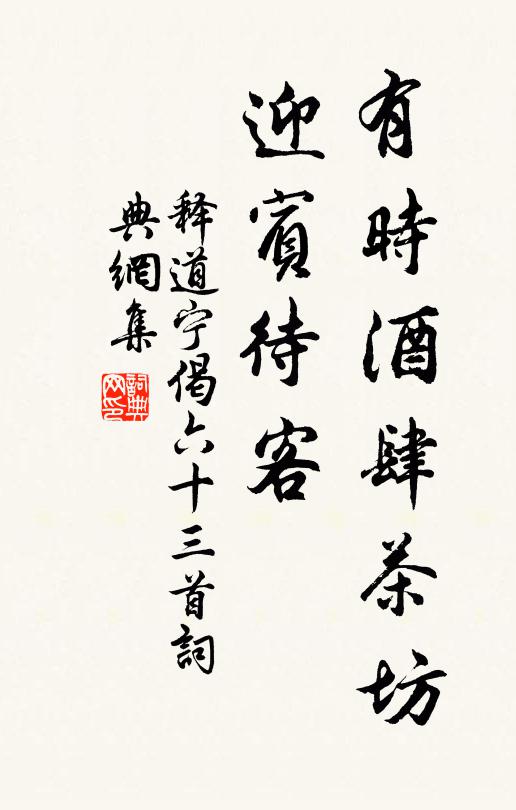 有時酒肆茶坊
迎賓待客
释道宁偈六十三首詞
典網集
詞典
网印